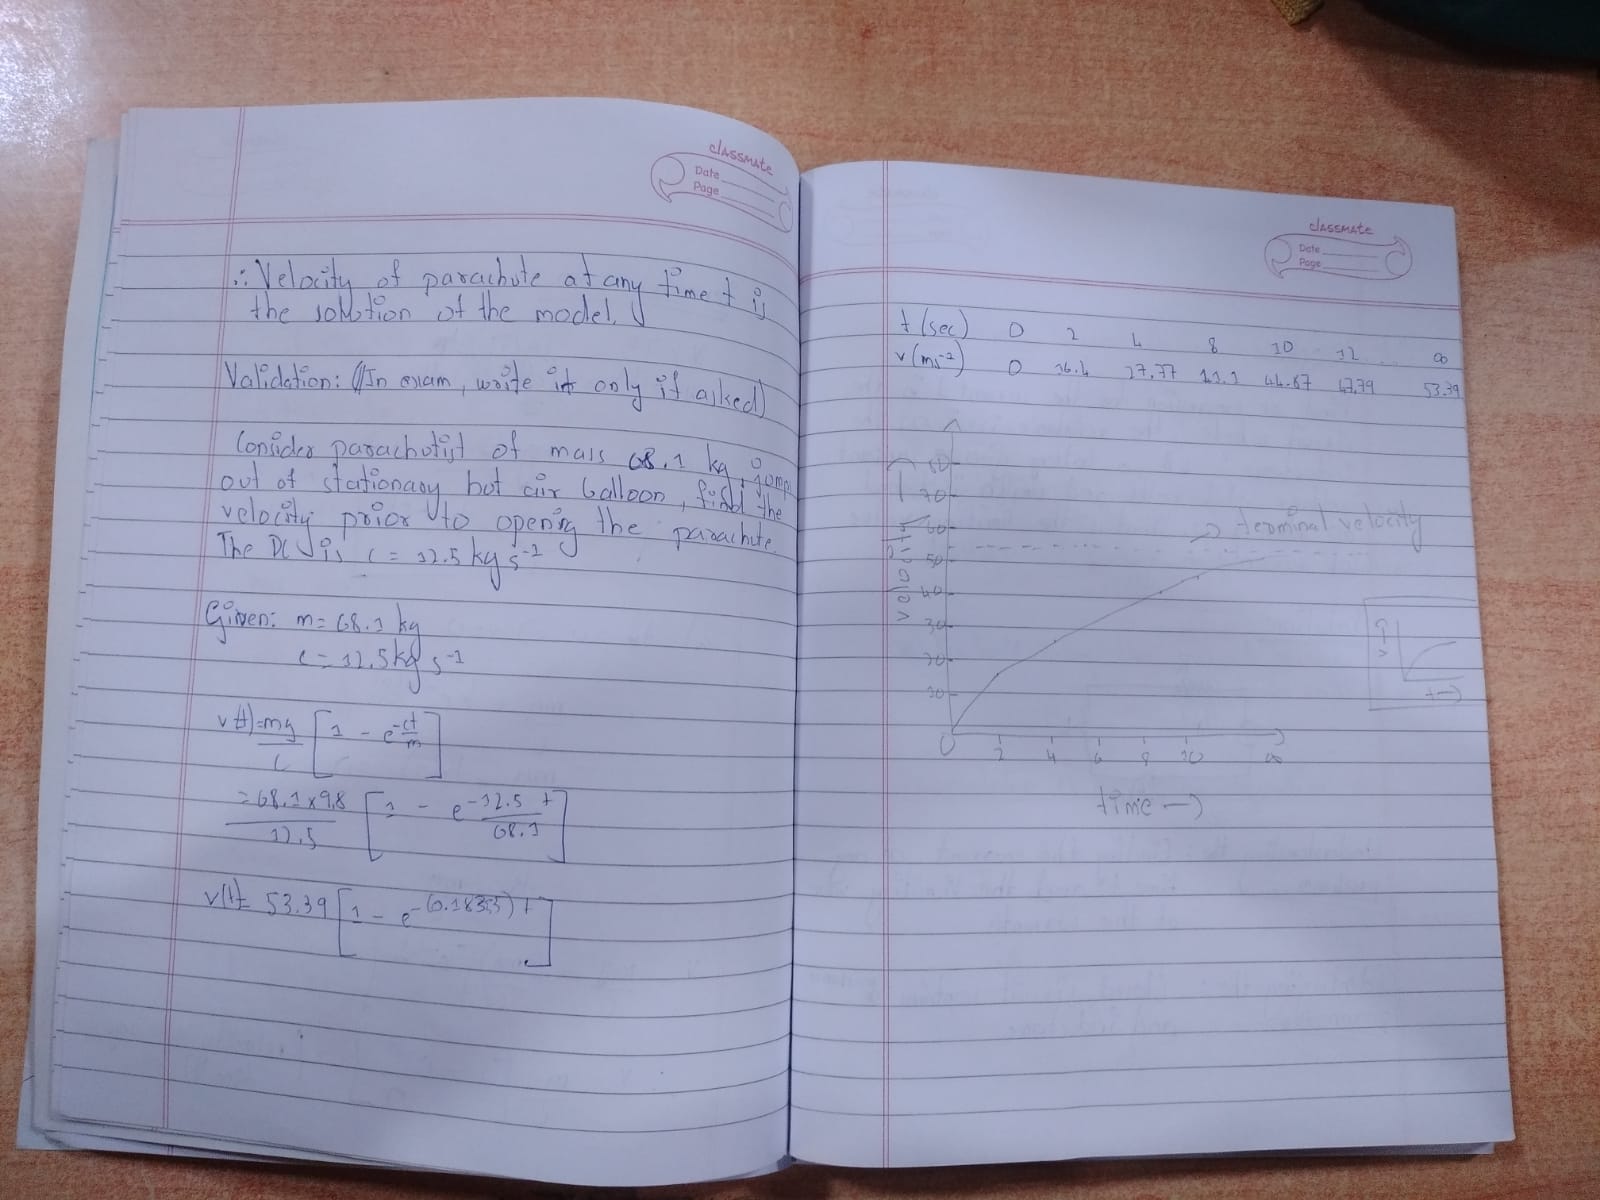 classmate
Date
Page
∴ Velocity of parachute at any time t is
the solution of the model.
Validation: (In exam, write it only if asked)
Consider parachutist of mass 68.1 kg, jump
out of stationary hot air balloon, find the
velocity prior to opening the parachute.
The DC is c = 12.5 kg s⁻¹
Given: m = 68.1 kg
c = 12.5 kg s⁻¹
v(t) = mg/c [1 - e^(-ct/m)]
= 68.1 x 9.8 / 12.5 [1 - e^(-12.5 t / 68.1)]
v(t) = 53.39 [1 - e^(-(0.18355) t)]
classmate
Date
Page
t (sec) 0 2 4 8 10 12 ∞
v (ms⁻²) 0 16.4 27.77 41.1 44.87 47.79 53.39
80
70
60
→ terminal velocity
50
40
30
20
10
velocity →
0 2 4 6 8 10 ∞
time →
v →
t →